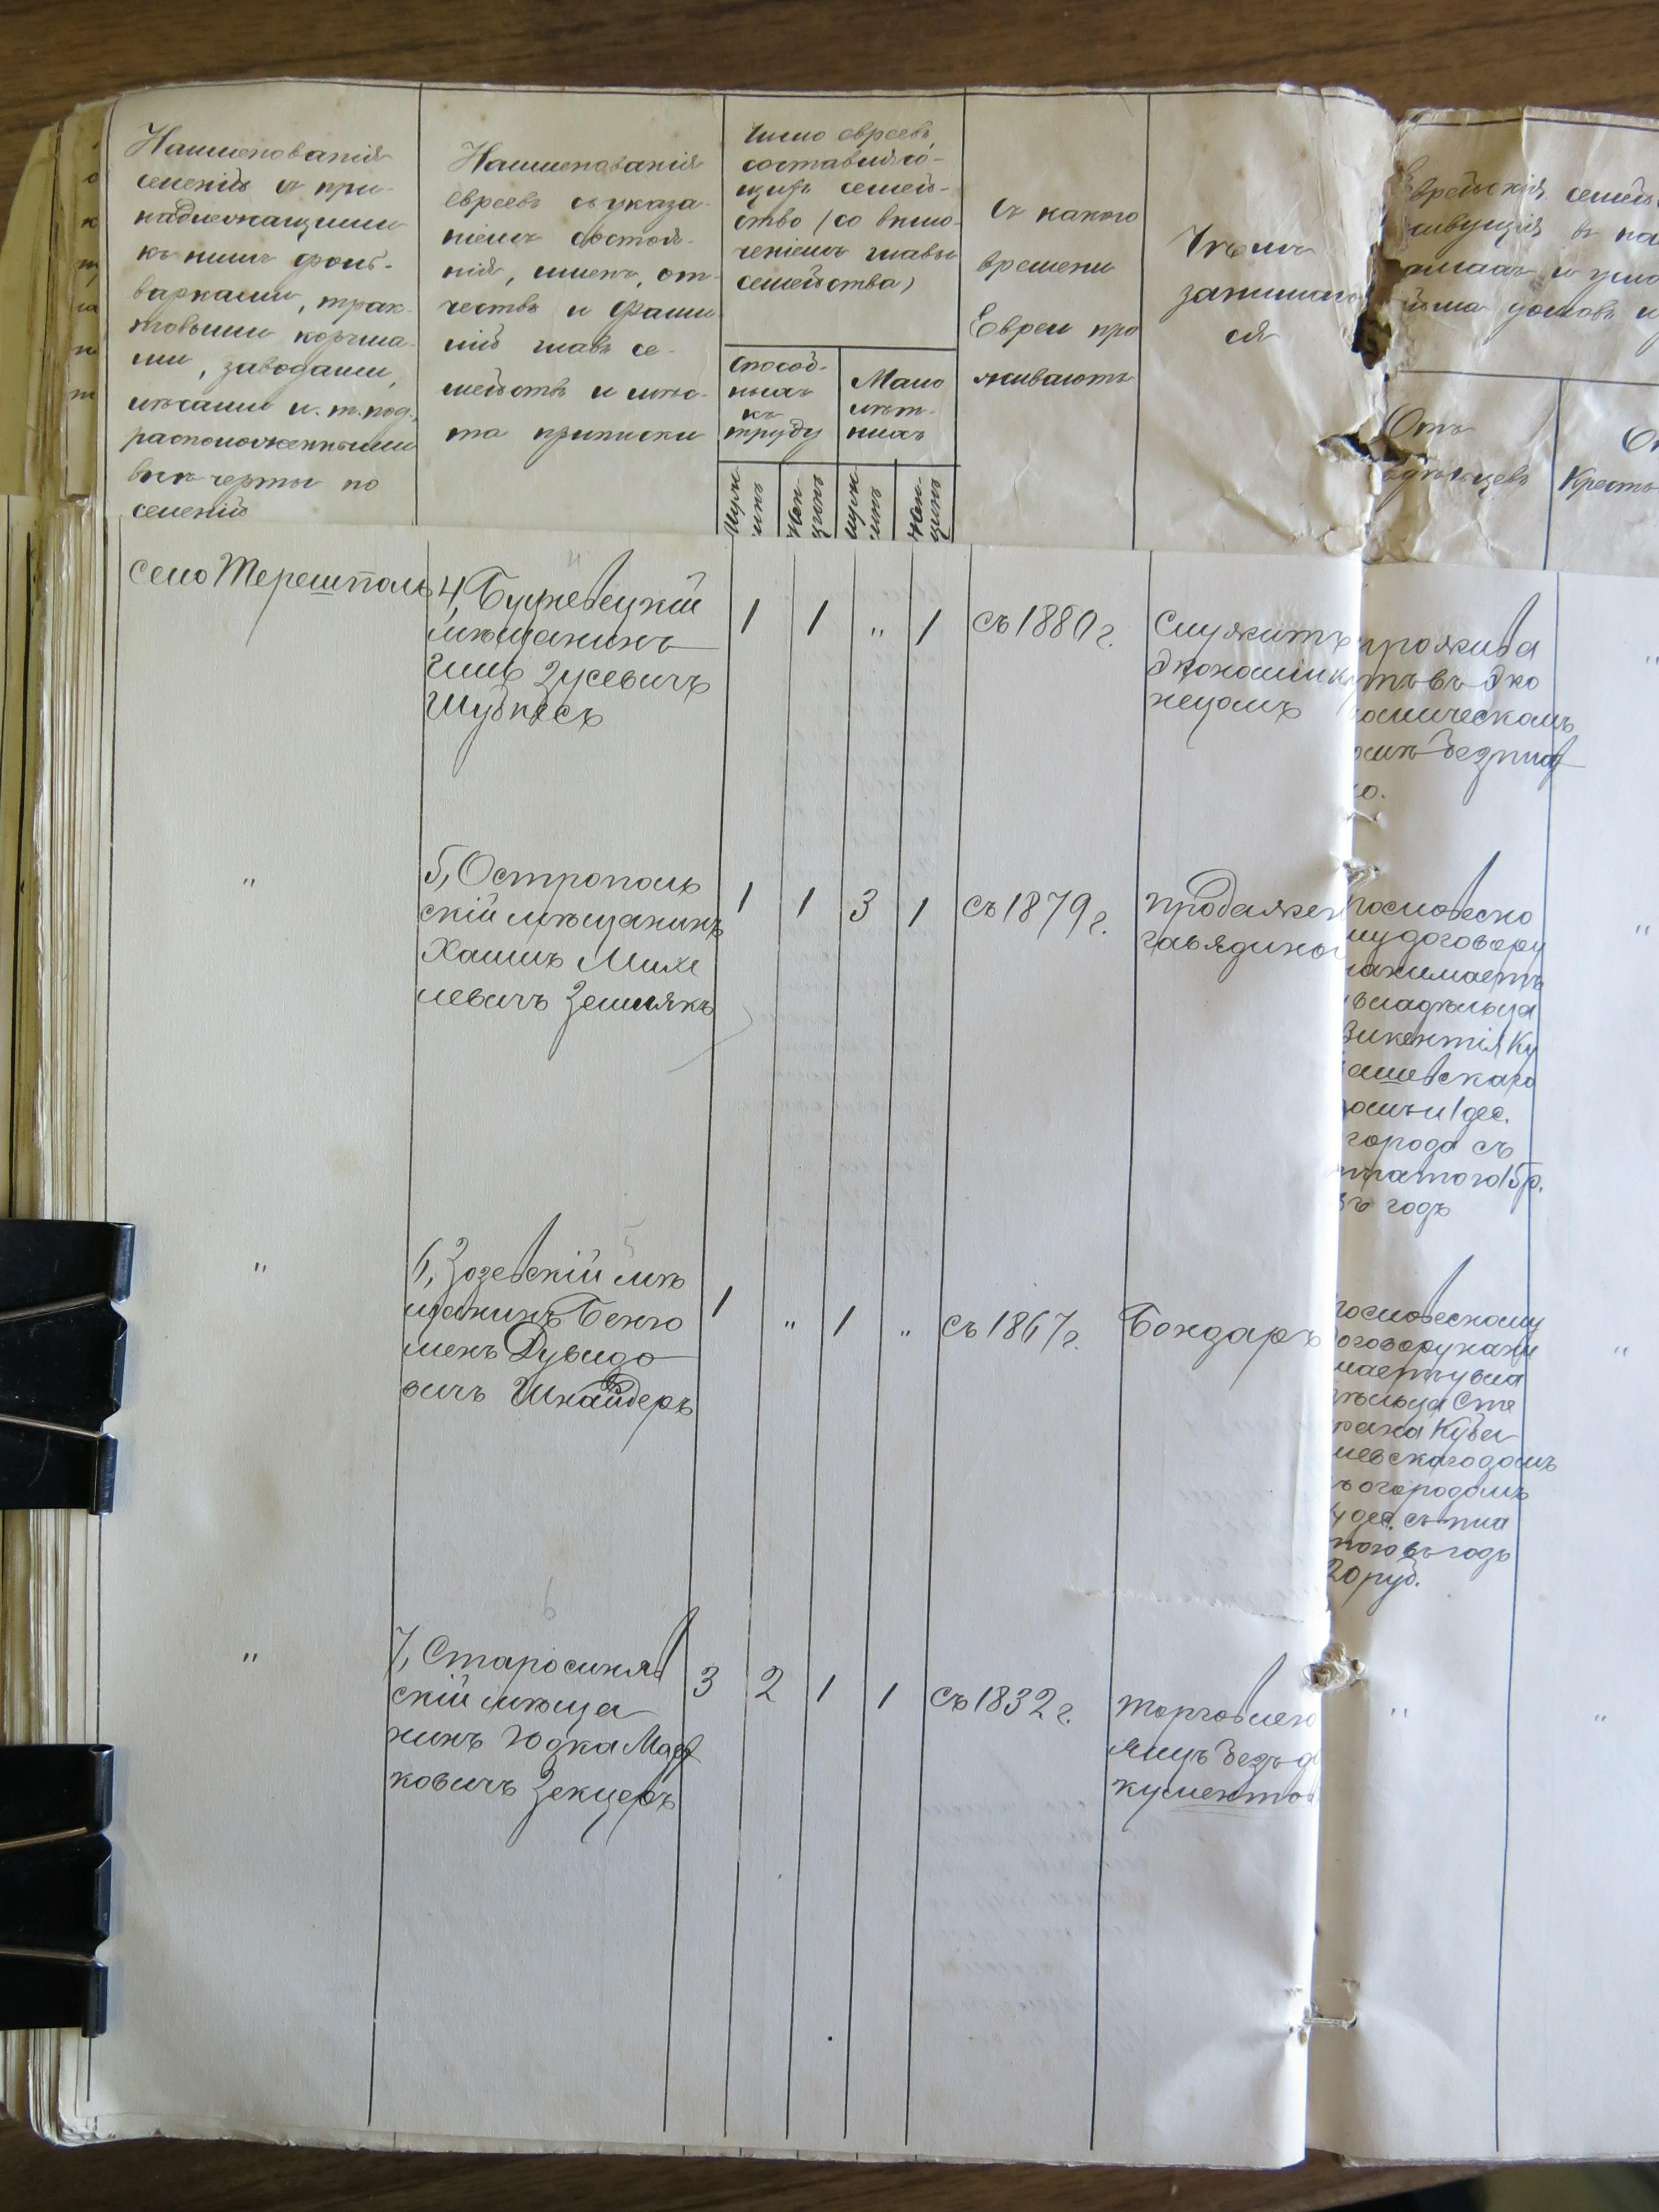 Наименованія
селеній съ при-
надлежащими
къ нимъ фоль-
варками, трак-
товыми корчма-
ми, заводами,
лѣсами и. т. под.
расположенными
внѣ черты по
селеній
Наименованія
евреевъ съ указа-
ніемъ состоя-
нія, именъ, от-
чествъ и фами
лій главъ се-
мействъ и мѣс-
та приписки
Число евреевъ,
составляю-
щихъ семей-
ство (со вклю-
ченіемъ главы
семейства)
Способ-
ныхъ
къ
труду
Мало
лѣт-
нихъ
Муж
чинъ
Жен-
щинъ
Муж
чинъ
Жен-
щинъ
Съ какого
времени
Евреи про
живаютъ
Чѣмъ
занимают
ся
Еврейскія семейс
живущія въ
Отъ
Кресть
село Терешполь
4, Бужевецкій
мѣщанинъ
Зусевичъ
1 1 " 1
съ 1880 г.
Служитъ
экономик
нецомъ
прожива
етъ въ эко
номическомъ
домѣ безплат
но.
"
"
5, Острополь
скій мѣщанинъ
Хаимъ Михе
левичъ Земнякъ
1 1 3 1
съ 1879 г.
продажей
гавядино
Пословесно
му договору
нанимаетъ
у владѣльца
Викентія Ку
скаго
домъ и 1 дес.
города съ
платою 15 р.
въ годъ
"
"
6, Зозевскій мѣ
щанинъ Беню
менъ Дувидо
вичъ Шнайдеръ
1 " 1 "
съ 1867 г.
Бондаръ
Пословескому
договору нани
маетъ у вла
дѣльца Сте
фана Куба
левскаго домъ
съ огородомъ
дес. съ пла
тою въ годъ
20 руб.
"
"
7, Старосиняв
скій мѣща
нинъ Юдка Мар
ковичъ Зекцеръ
3 2 1 1
съ 1832 г.
торговлею
яицъ безъ до
кументов
"
"